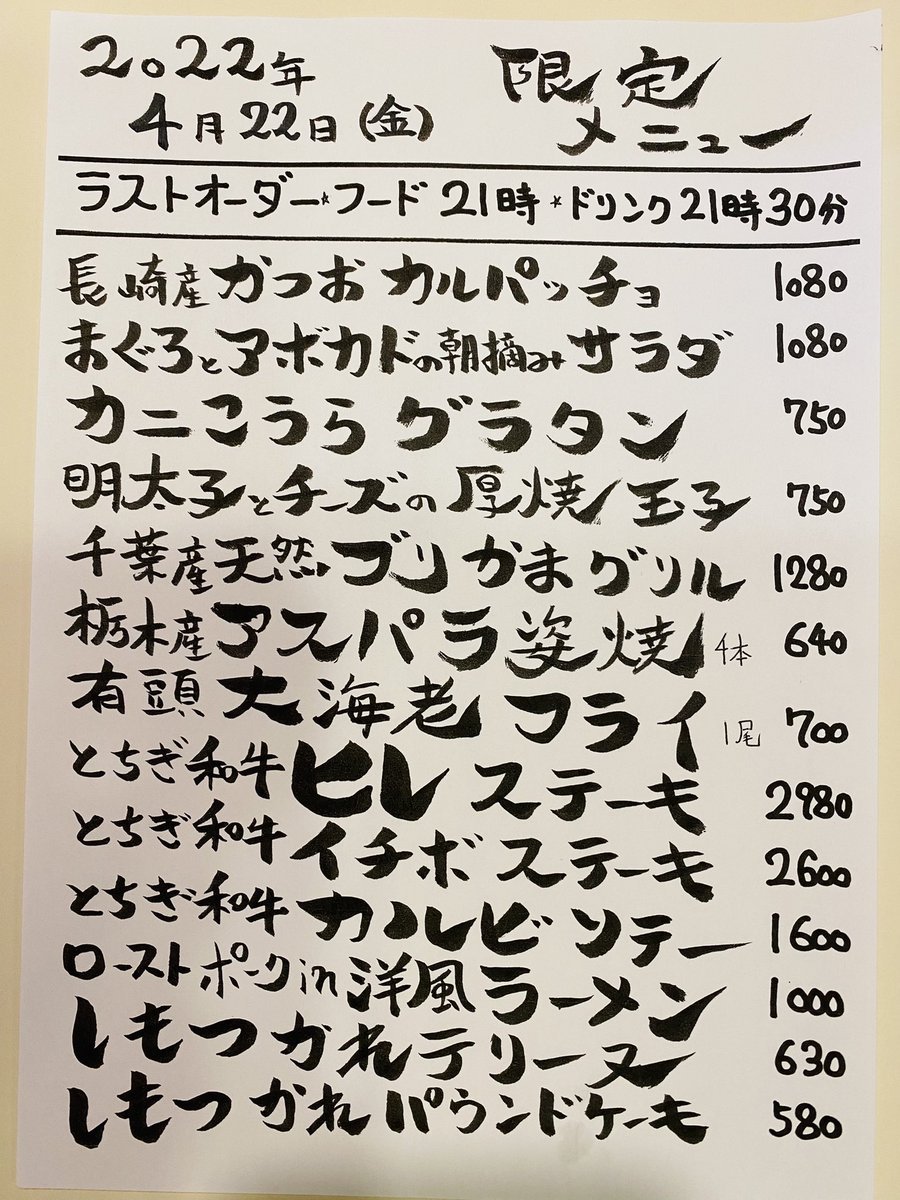 2022年
4月22日(金)
限定
メニュー
ラストオーダー☆フード21時☆ドリンク21時30分
長崎産かつおカルパッチョ 1080
まぐろとアボカドの朝摘みサラダ 1080
カニこうらグラタン 750
明太子とチーズの厚焼玉子 750
千葉産天然ブリかまグリル 1280
栃木産アスパラ姿焼 4本 640
有頭大海老フライ 1尾 700
とちぎ和牛ヒレステーキ 2980
とちぎ和牛イチボステーキ 2600
とちぎ和牛カルビソテー 1600
ローストポークin洋風ラーメン 1000
しもつかれテリーヌ 630
しもつかれパウンドケーキ 580